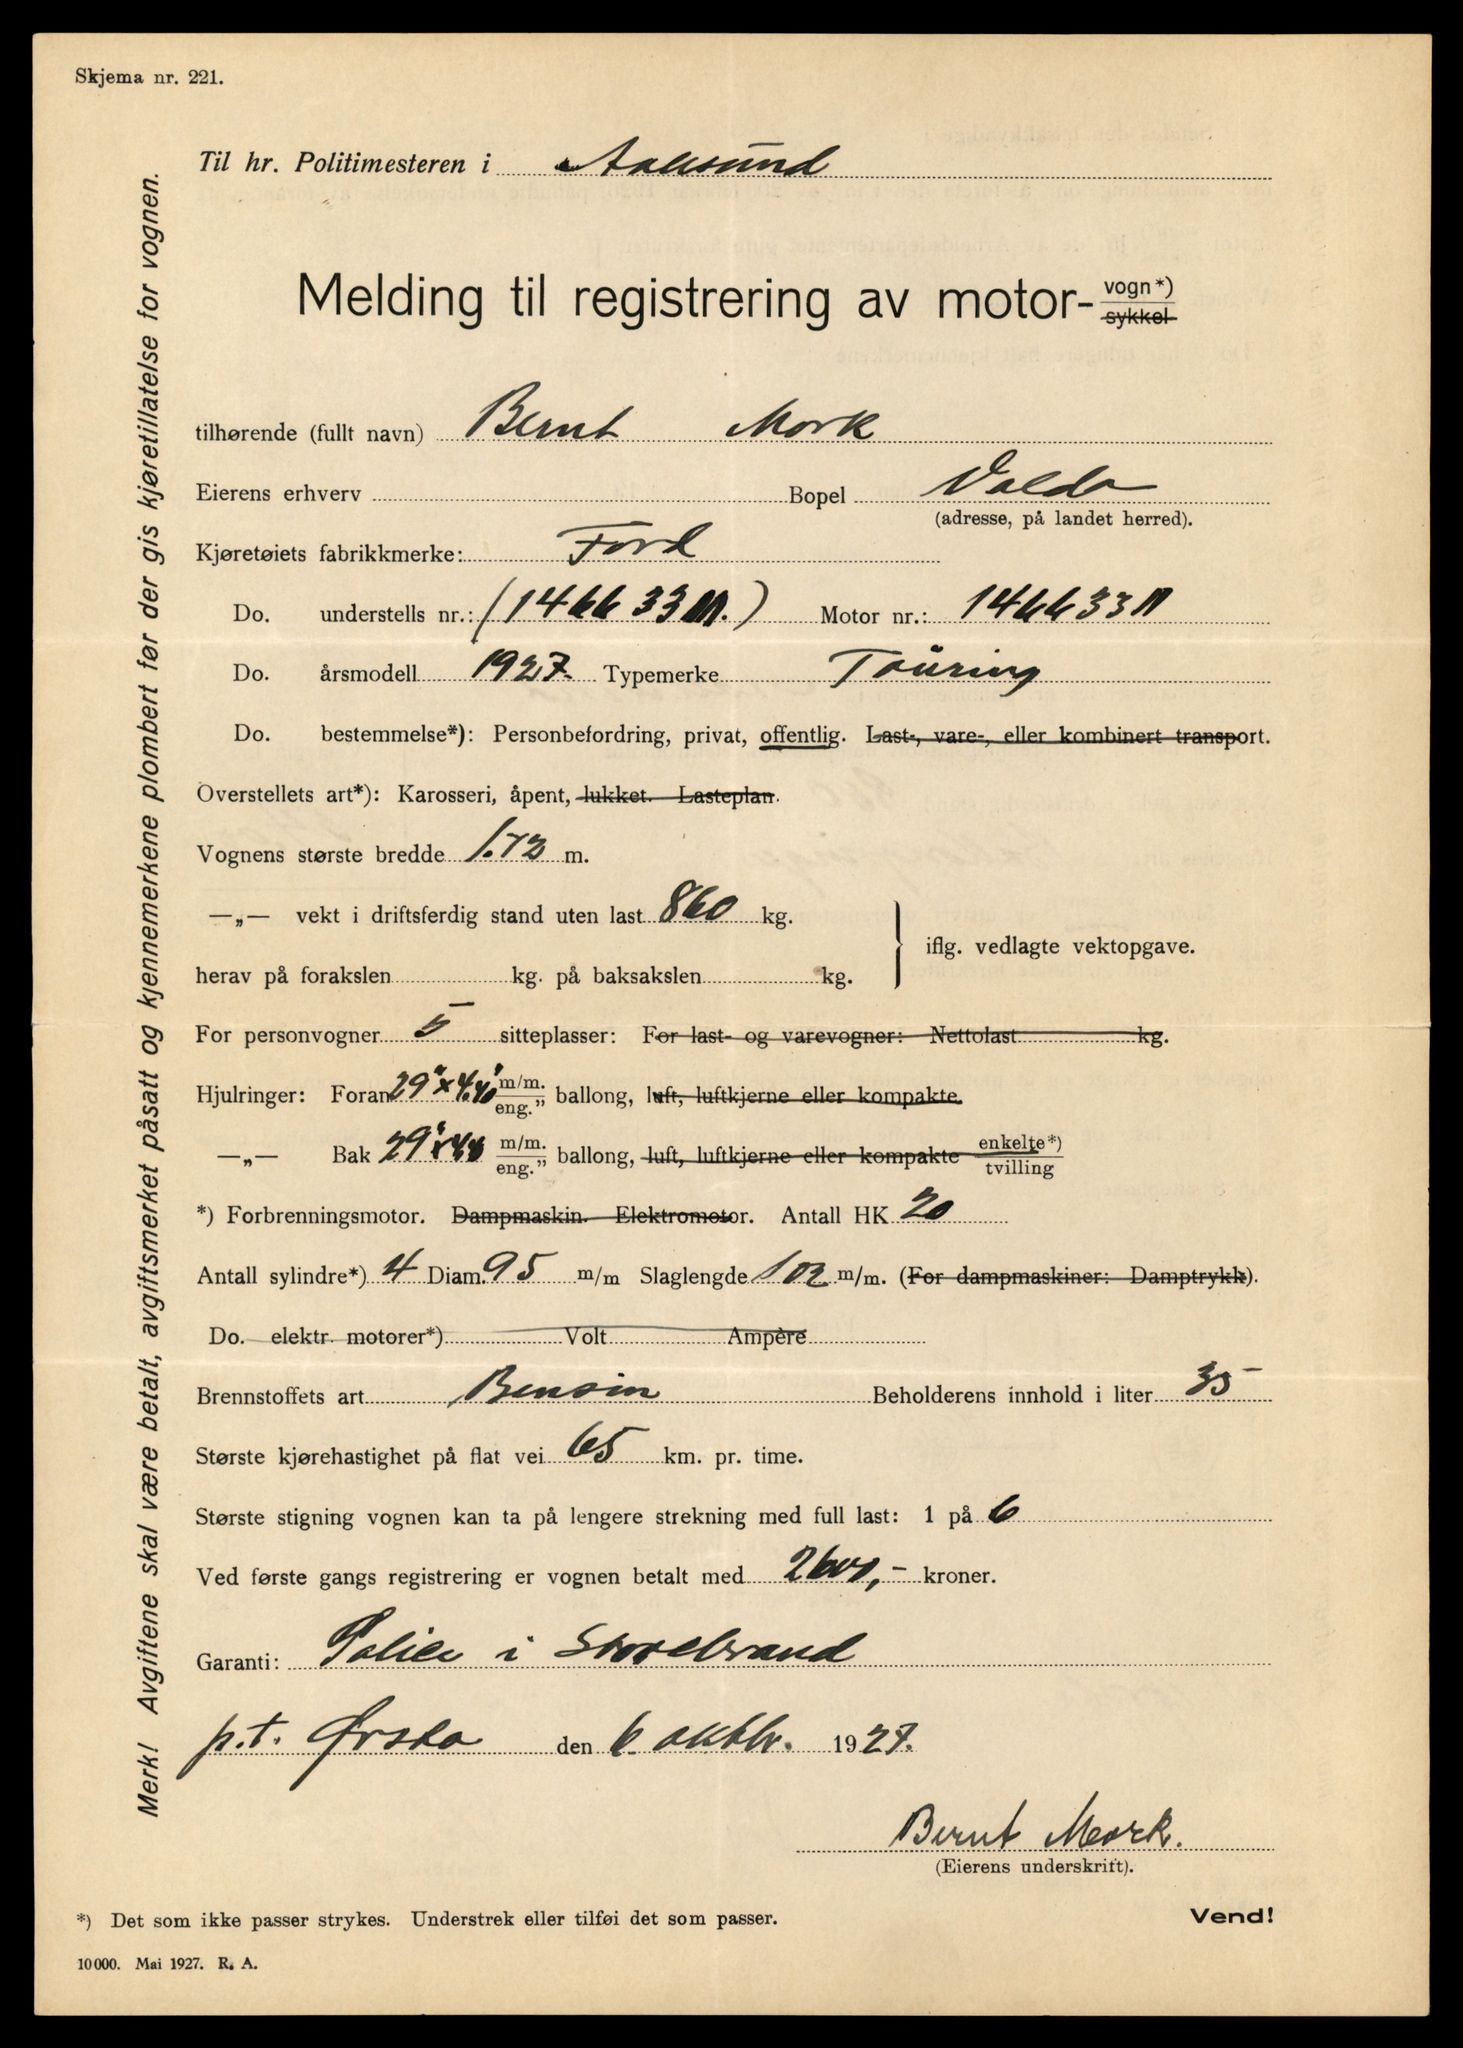 Skjema nr. 221.
Til hr. Politimesteren i Aalesund
Melding til registrering av motor- vogn*) sykkel
tilhørende (fullt navn) Bernt Mork
Eierens erhverv Bopel Volda
(adresse, på landet herred).
Kjøretøiets fabrikkmerke: Ford
Do. understells nr.: (146633M.) Motor nr.: 146633M
Do. årsmodell 1927. Typemerke Touring
Do. bestemmelse*): Personbefordring, privat, offentlig. Last-, vare-, eller kombinert transport.
Overstellets art*): Karosseri, åpent, lukket. Lasteplan.
Vognens største bredde 1.72 m.
—„— vekt i driftsferdig stand uten last 860 kg.
iflg. vedlagte vektopgave.
herav på forakslen kg. på baksakslen kg.
For personvogner 5 sitteplasser: For last- og varevogner: Nettolast kg.
Hjulringer: Foran 29"x4.40" m/m. eng." ballong, luft, luftkjerne eller kompakte.
—„— Bak 29"x4.40 m/m. eng." ballong, luft, luftkjerne eller kompakte enkelte*) tvilling
*) Forbrenningsmotor. Dampmaskin. Elektromotor. Antall HK 20
Antall sylindre*) 4 Diam. 95 m/m Slaglengde 102 m/m. (For dampmaskiner: Damptrykk).
Do. elektr. motorer*) Volt Ampère
Brennstoffets art Bensin Beholderens innhold i liter 35
Største kjørehastighet på flat vei 65 km. pr. time.
Største stigning vognen kan ta på lengere strekning med full last: 1 på 6
Ved første gangs registrering er vognen betalt med 2600,- kroner.
Garanti: Police i Storebrand
p.t. Ørsta den 6 oktbr. 1927.
Bernt Mork.
(Eierens underskrift).
*) Det som ikke passer strykes. Understrek eller tilføi det som passer.
Vend!
10000. Mai 1927. R. A.
Merk! Avgiftene skal være betalt, avgiftsmerket påsatt og kjennemerkene plombert før der gis kjøretillatelse for vognen.